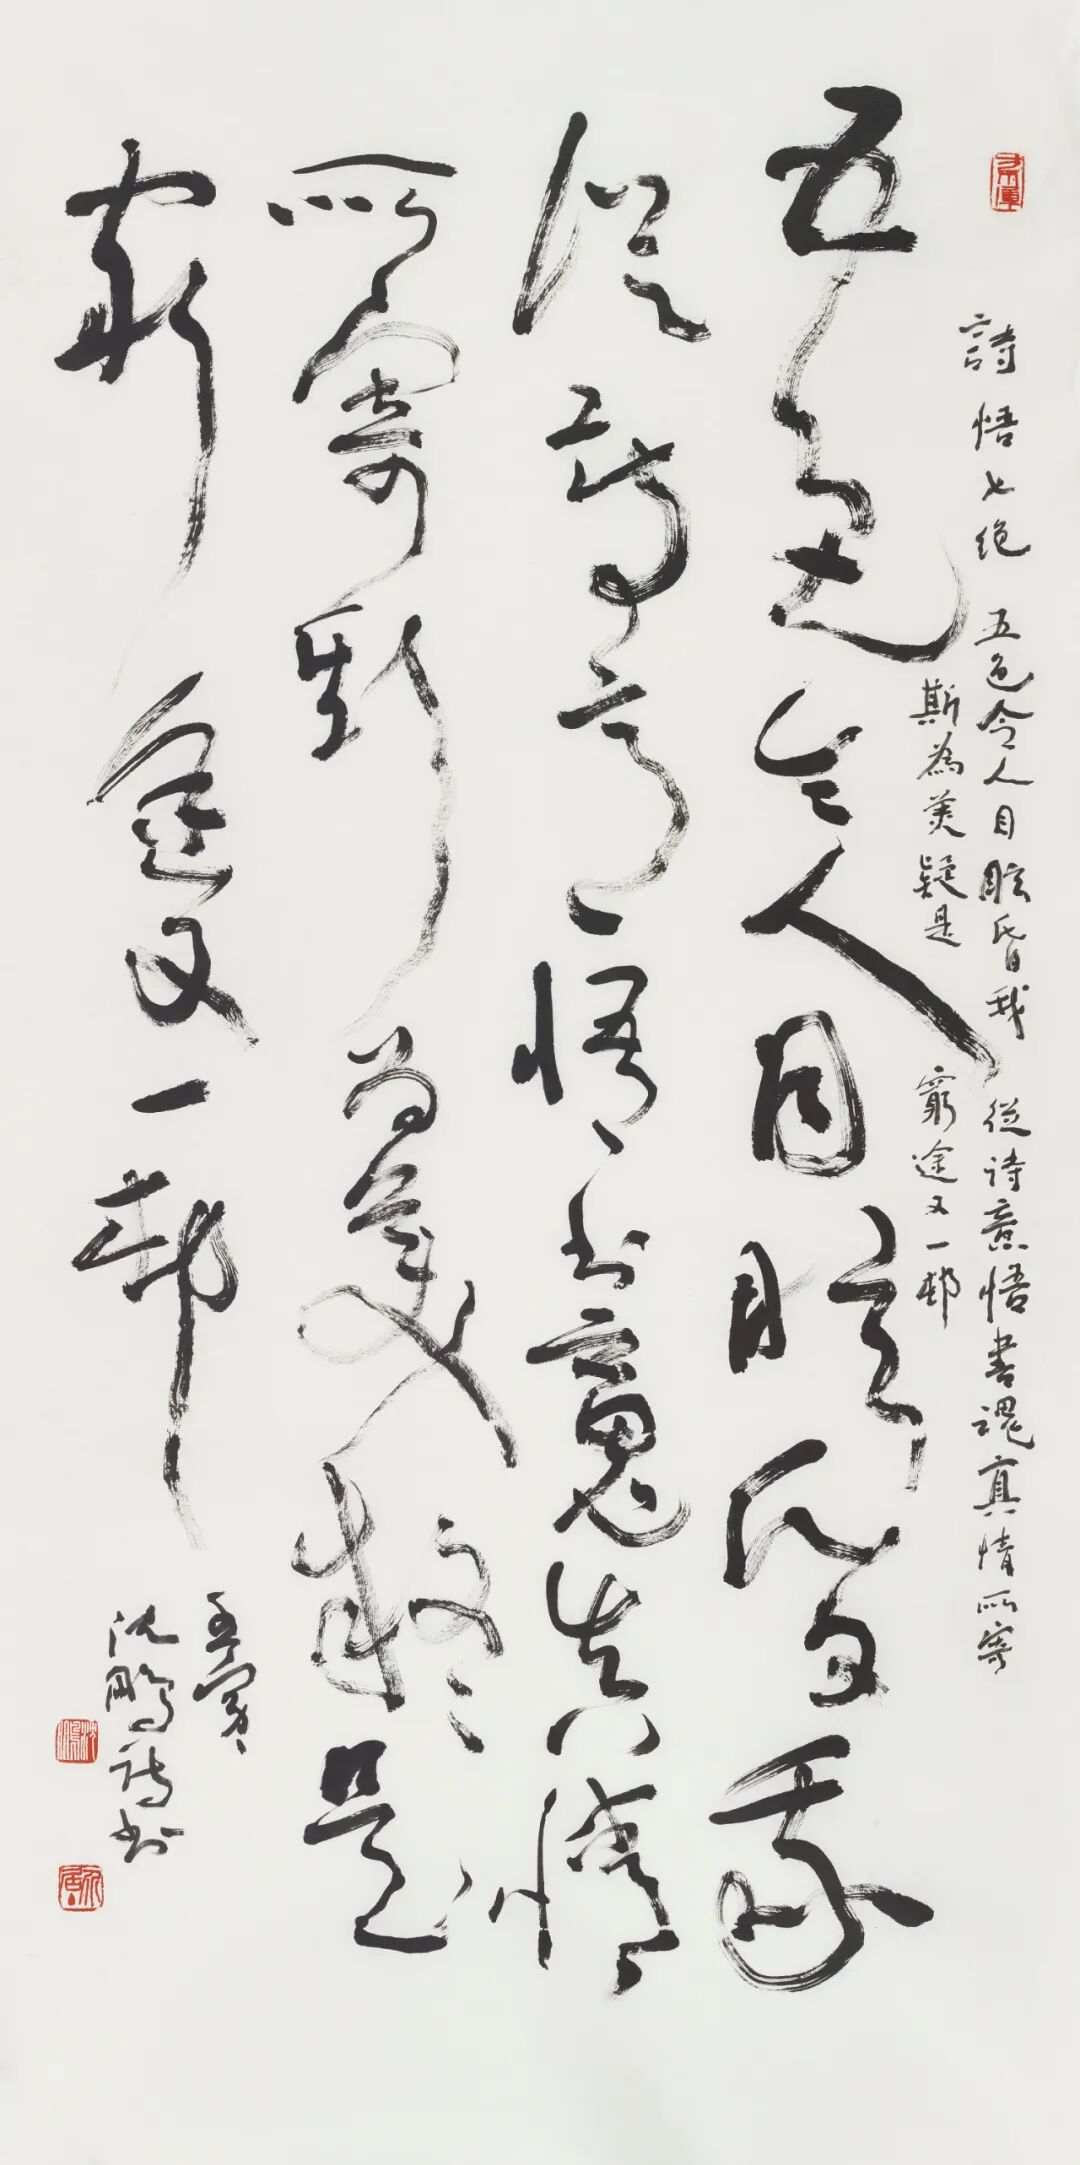 詩悟七绝 五色令人目眩昏我從诗意悟書魂真情所寄
斯為美疑是窮途又一邨
五色令人目眩昏我
從詩意悟書魂真情
所寄斯為美疑是
窮途又一邨
沈鵬詩書
沈鵬